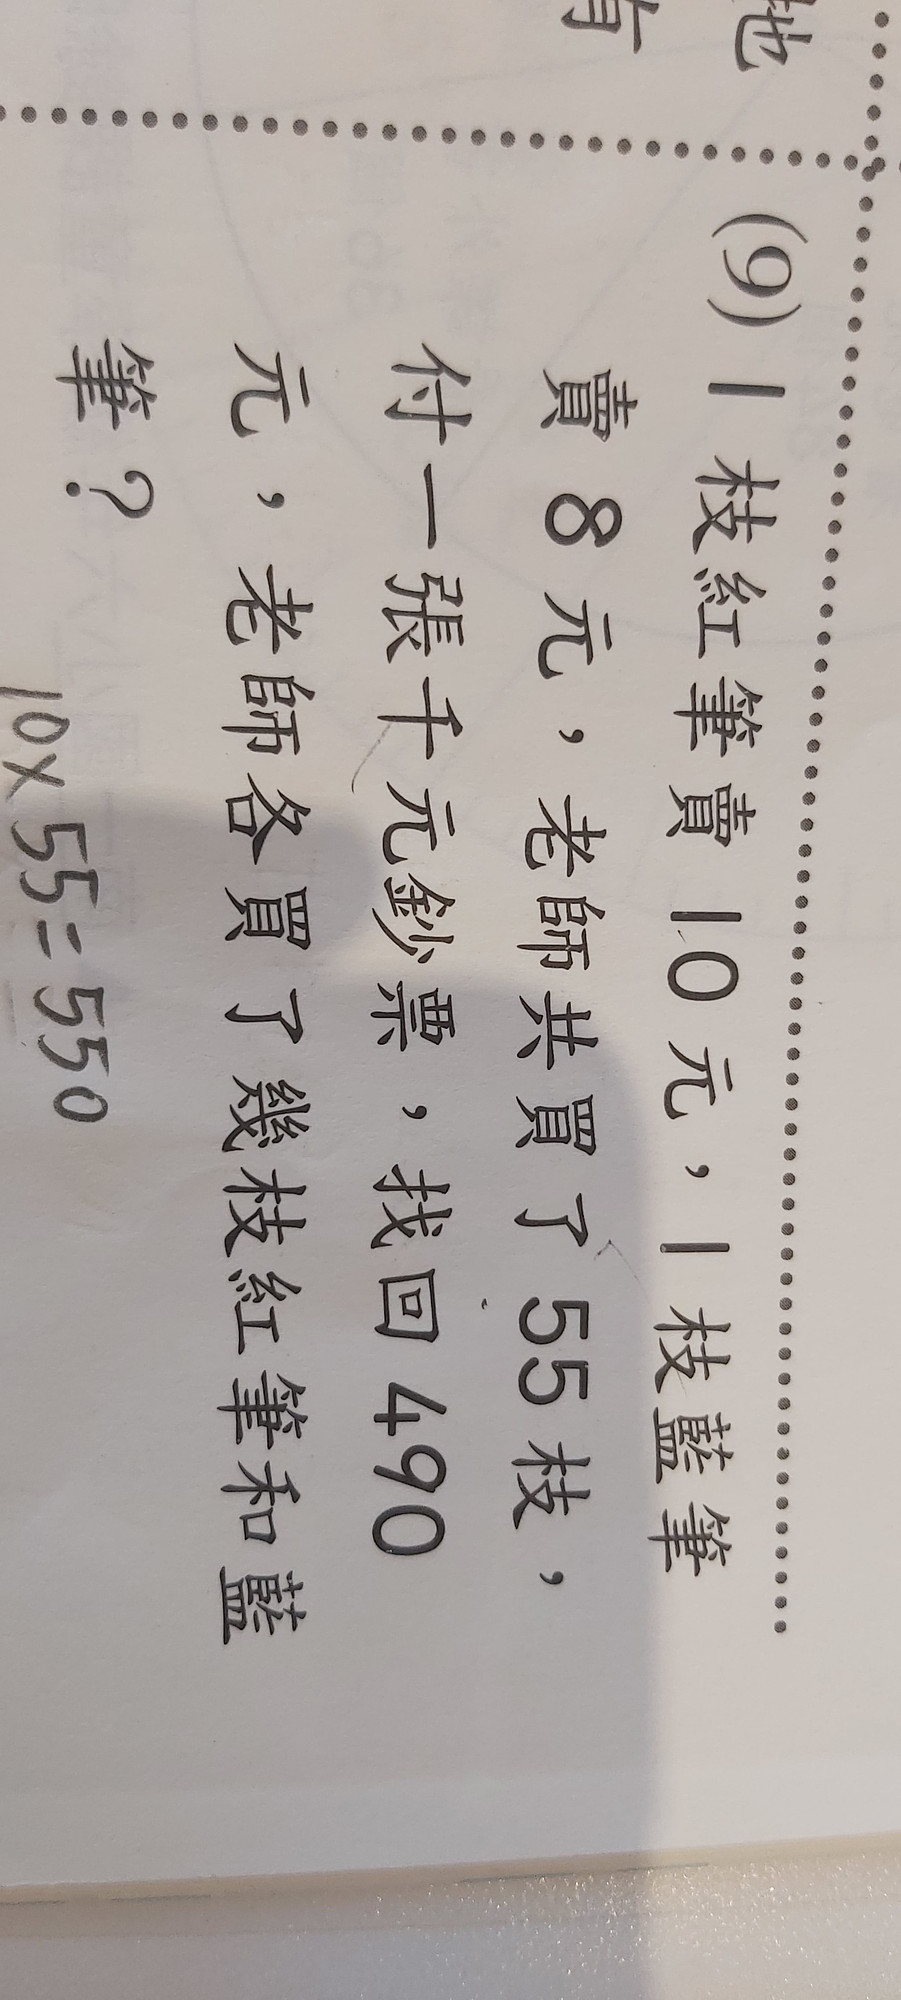 地
有
(9) 1 枝紅筆賣 10 元，1 枝藍筆
賣 8 元，老師共買了 55 枝，
付一張千元鈔票，找回 490
元，老師各買了幾枝紅筆和藍
筆？
10×55=550